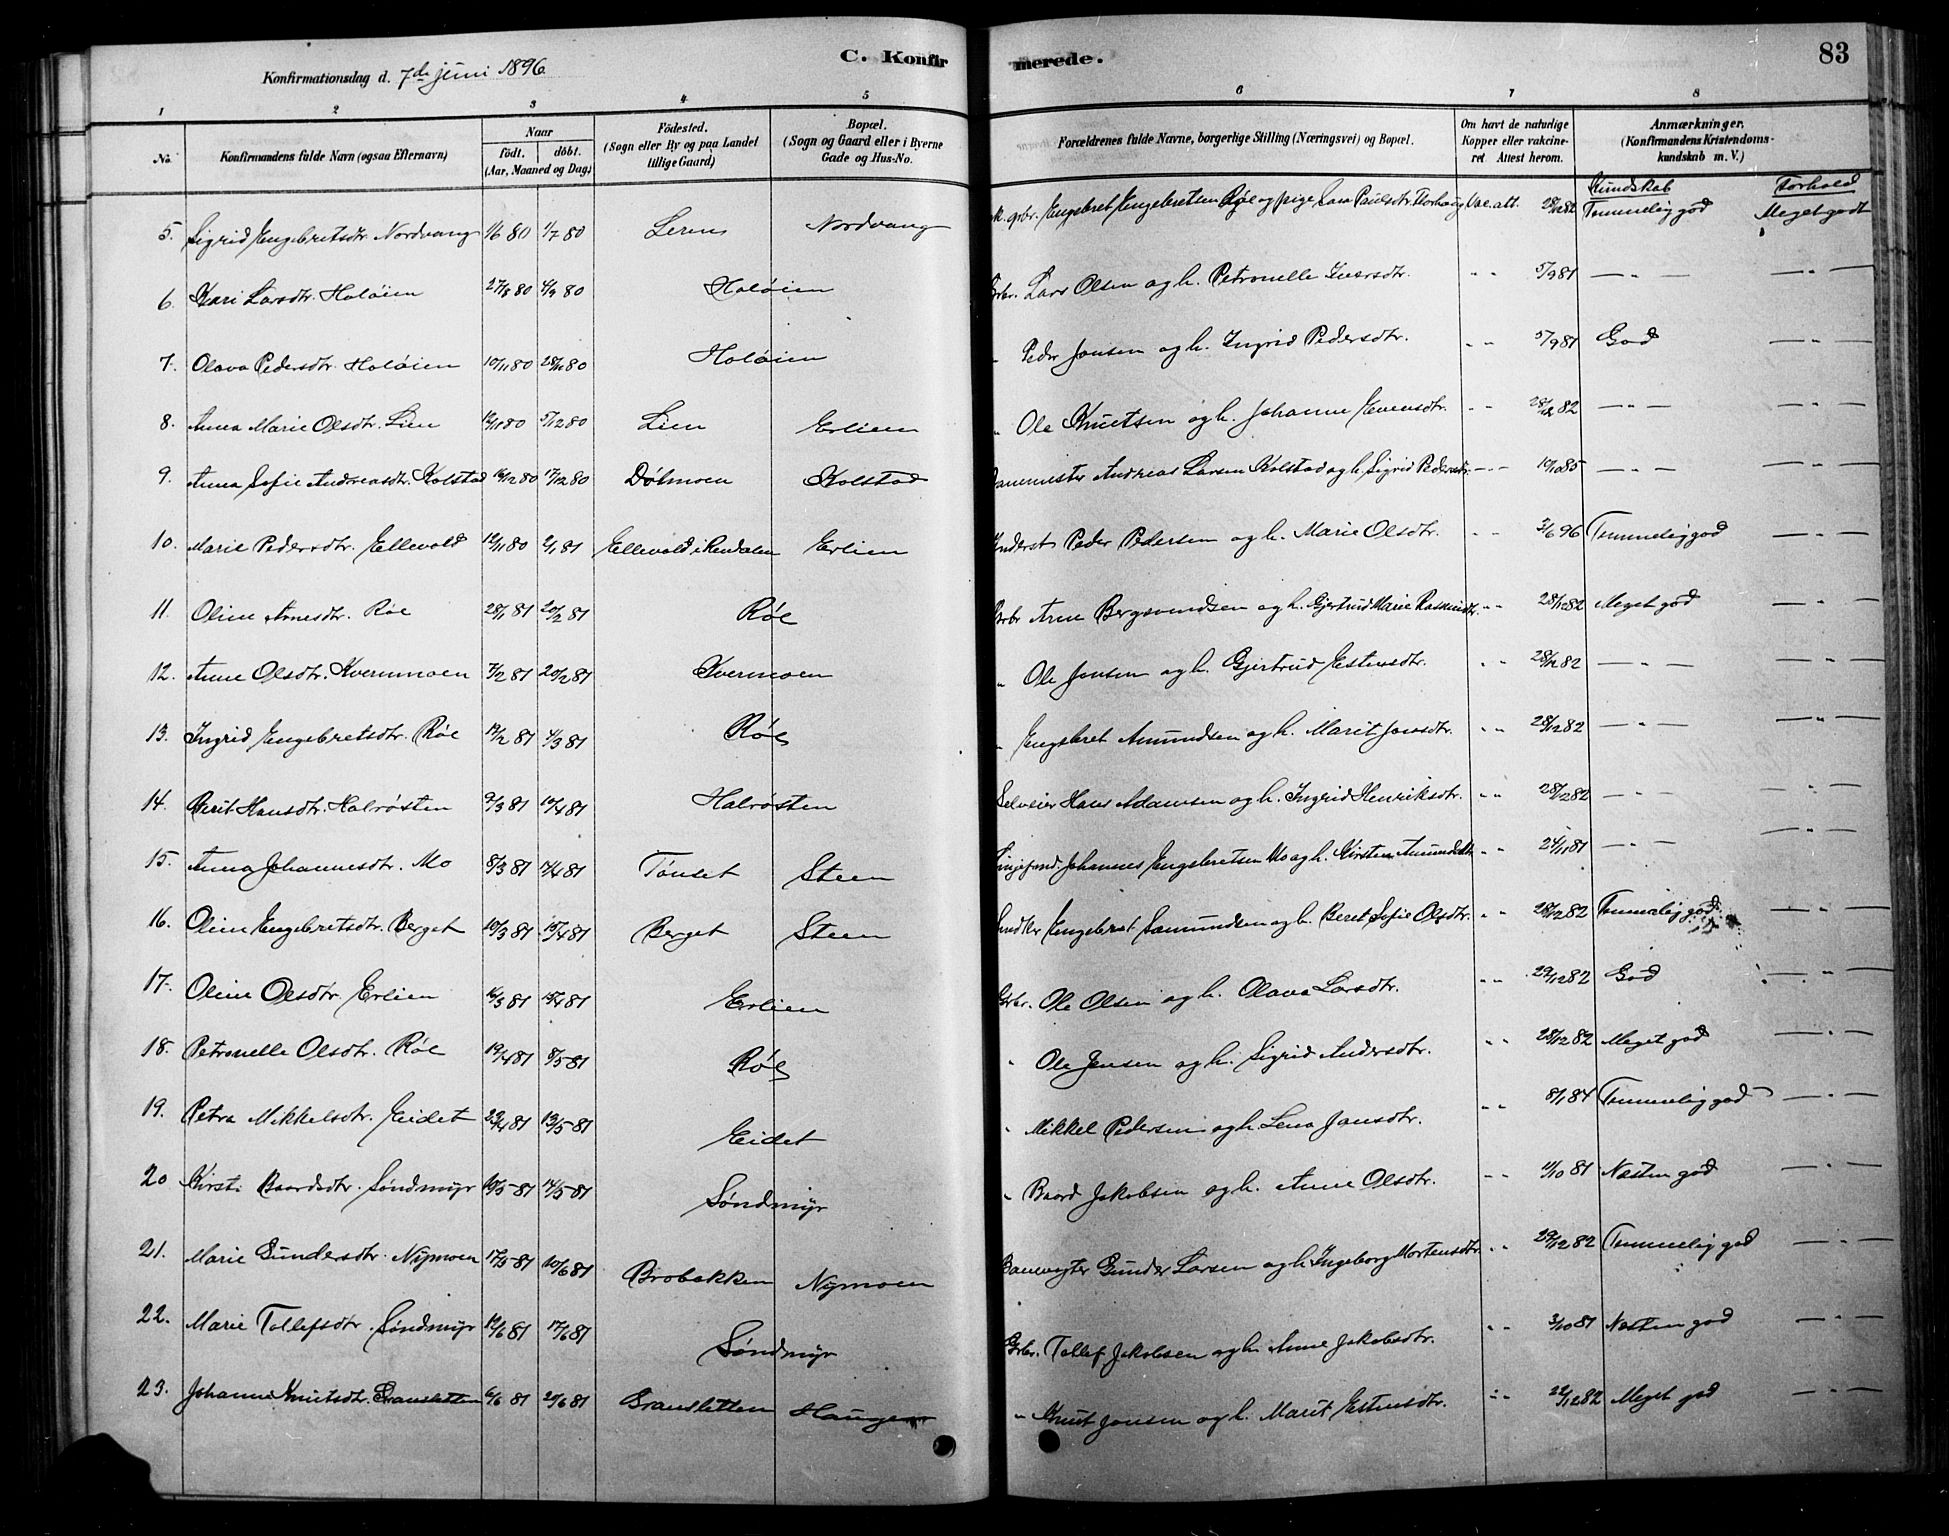 Konfirmationsdag d. 7de juni 1896
C. Konfirmerede.
83
1 2 3 4 5 6 7 8
No.
Konfirmandens fulde Navn (ogsaa Efternavn)
Naar
födt. döbt.
(Aar, Maaned og Dag)
Födested.
(Sogn eller By og paa Landet
tillige Gaard)
Bopæl.
(Sogn og Gaard eller i Byerne
Gade og Hus-No.
Forældrenes fulde Navne, borgerlige Stilling (Næringsvei) og Bopæl.
Om havt de naturlige
Kopper eller vakcine-
ret Attest herom.
Anmærkninger.
(Konfirmandens Kristendoms-
kundskab m. V.)
Kundskab Forhold
5. Sigrid Engebretsdtr. Nordvang 1/6 80 1/7 80 Nordvang Engebret Engebretsen Røe og pige Paulsdtr. Vac. att. 28/12 82 Temmelig god Meget godt
6. Kari Larsdtr. Holøien 27/8 80 4/9 80 Holøien Gbr. Lars Olsen og h. Petronelle Iversdtr. " " 5/9 81 — " — — " —
7. Olava Pedersdtr. Holøien 10/11 80 28/11 80 Holøien " Peder Jonsen og h. Ingrid Pedersdtr. " " 5/9 81 God — " —
8. Anna Marie Olsdtr. Lien 5/12 80 Lien Erlien " Ole Knutsen og h. Johanne Evensdtr. " " 28/12 82 — " — — " —
9. Anna Sofie Andreasdtr. Kolstad 16/12 80 17/12 80 Dølmoen Kolstad Banemester Andreas Larsen Kolstad og h. Sigrid Pedersdtr. " " 10/10 85 — " — — " —
10. Marie Pedersdtr. Ellevold 12/11 80 2/1 81 Ellevold i Rendalen Erlien Inderst Peder Pedersen og h. Marie Olsdtr. " " 3/6 96 Temmelig god — " —
11. Oline Arnesdtr. Røe 28/1 81 20/2 81 Røe Gbr. Arne Bergsvendsen og h. Gjertrud Marie Rasmusdtr. " " 28/12 82 Meget god — " —
12. Anne Olsdtr. Kvernmoen 7/2 81 20/2 81 Kvernmoen " Ole Jonsen og h. Gjertrud Estensdtr. " " 28/12 82 — " — — " —
13. Ingrid Engebretsdtr. Røe 17/2 81 4/3 81 Røe " Engebret Amundsen og h. Marit Jonsdtr. " " 28/12 82 — " — — " —
14. Berit Hansdtr. Halrøsten 9/3 81 17/4 81 Halrøsten Selveier Hans Adamsen og h. Ingrid Henriksdtr. " " 28/12 82 — " — — " —
15. Anna Johannesdtr. Mo 8/3 81 17/4 81 Tønset Steen Johannes Engebretsen Mo og h. Kirsten Amundsdtr. " " 24/11 81 — " — — " —
16. Oline Engebretsdtr. Berget 10/3 81 15/4 81 Berget Steen Snedker Engebret Sæmundsen og h. Beret Sofie Olsdtr. " " 28/12 82 Temmelig god. — " —
17. Oline Olsdtr. Erlien 16/3 81 18/4 81 Erlien Gbr. Ole Olsen og h. Olava Larsdtr. " " 29/12 82 God — " —
18. Petronelle Olsdtr. Røe 19/4 81 8/5 81 Røe " Ole Jensen og h. Sigrid Andersdtr. " " 28/12 82 Meget god — " —
19. Petra Mikkelsdtr. Eidet 23/4 81 13/5 81 Eidet " Mikkel Pedersen og h. Lena Jonsdtr. " " 8/1 84 Temmelig god — " —
20 Kirsti Baardsdtr. Søndmyr 10/5 81 14/5 81 Søndmyr " Baard Jakobsen og h. Anne Olsdtr. " " 11/10 81 Næsten god — " —
21. Marie Gundersdtr. Nymoen 17/5 81 10/6 81 Brobakken Nymoen Banevogter Gunder Larsen og h. Ingeborg Mortensdtr. " " 29/12 82 Temmelig god — " —
22. Marie Tollefsdtr. Søndmyr 12/6 81 17/6 81 Søndmyr Gbr. Tollef Jakobsen og h. Anne Jakobsdtr. " " 3/10 81 Næsten god — " —
23. Johanne Knutsdtr. Gransletten 6/6 81 20/6 81 Gransletten Haugen " Knut Jonsen og h. Marit Estensdtr. " " 22/12 82 Meget god — " —